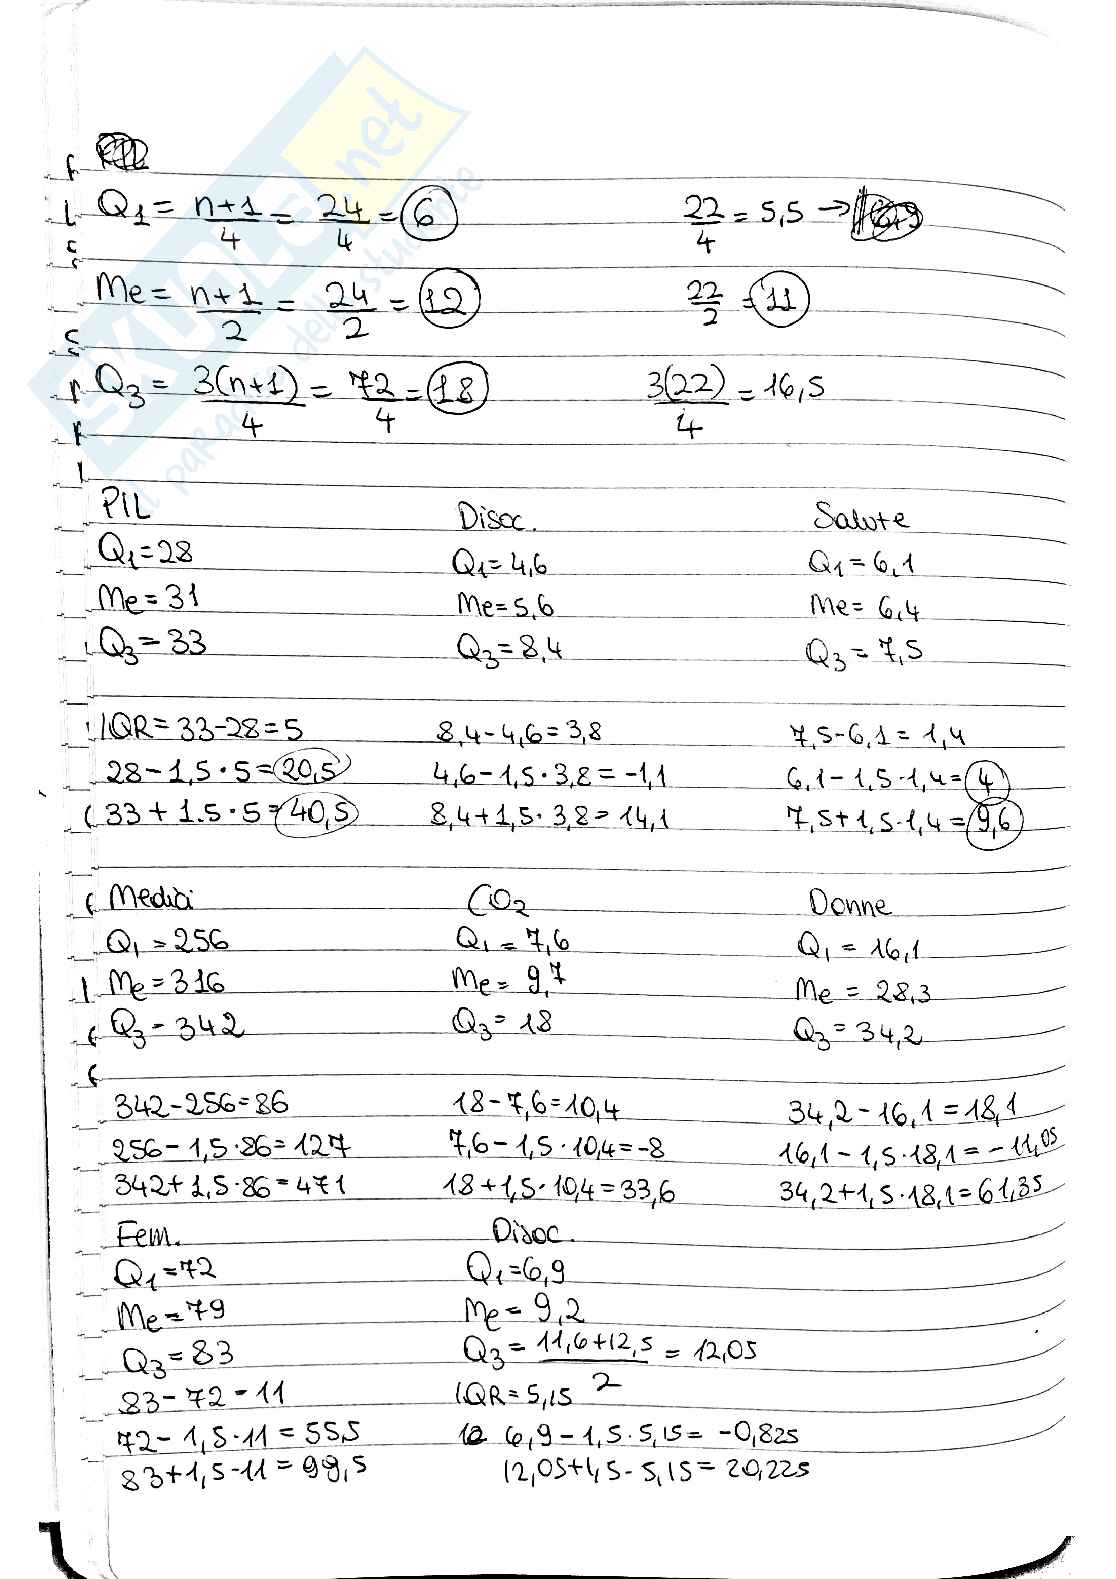 Q1 = n+1/4 = 24/4 = 6 22/4 = 5,5 →
Me = n+1/2 = 24/2 = 12 22/2 = 11
Q3 = 3(n+1)/4 = 72/4 = 18 3(22)/4 = 16,5
PIL Disoc. Salute
Q1=28 Q1=4,6 Q1=6,1
Me=31 Me=5,6 Me=6,4
Q3=33 Q3=8,4 Q3=7,5
IQR=33-28=5 8,4-4,6=3,8 7,5-6,1=1,4
28-1,5·5=20,5 4,6-1,5·3,8=-1,1 6,1-1,5·1,4=4
33+1.5·5=40,5 8,4+1,5·3,8=14,1 7,5+1,5·1,4=9,6
Medici CO2 Donne
Q1=256 Q1=7,6 Q1=16,1
Me=316 Me=9,7 Me=28,3
Q3=342 Q3=18 Q3=34,2
342-256=86 18-7,6=10,4 34,2-16,1=18,1
256-1,5·86=127 7,6-1,5·10,4=-8 16,1-1,5·18,1=-11,05
342+1,5·86=471 18+1,5·10,4=33,6 34,2+1,5·18,1=61,35
Fem. Disoc.
Q1=72 Q1=6,9
Me=79 Me=9,2
Q3=83 Q3=11,6+12,5/2=12,05
83-72=11 IQR=5,15
72-1,5·11=55,5 6,9-1,5·5,15=-0,825
83+1,5·11=99,5 12,05+1,5·5,15=20,225
SKUOLA.net
il paradiso dello studente